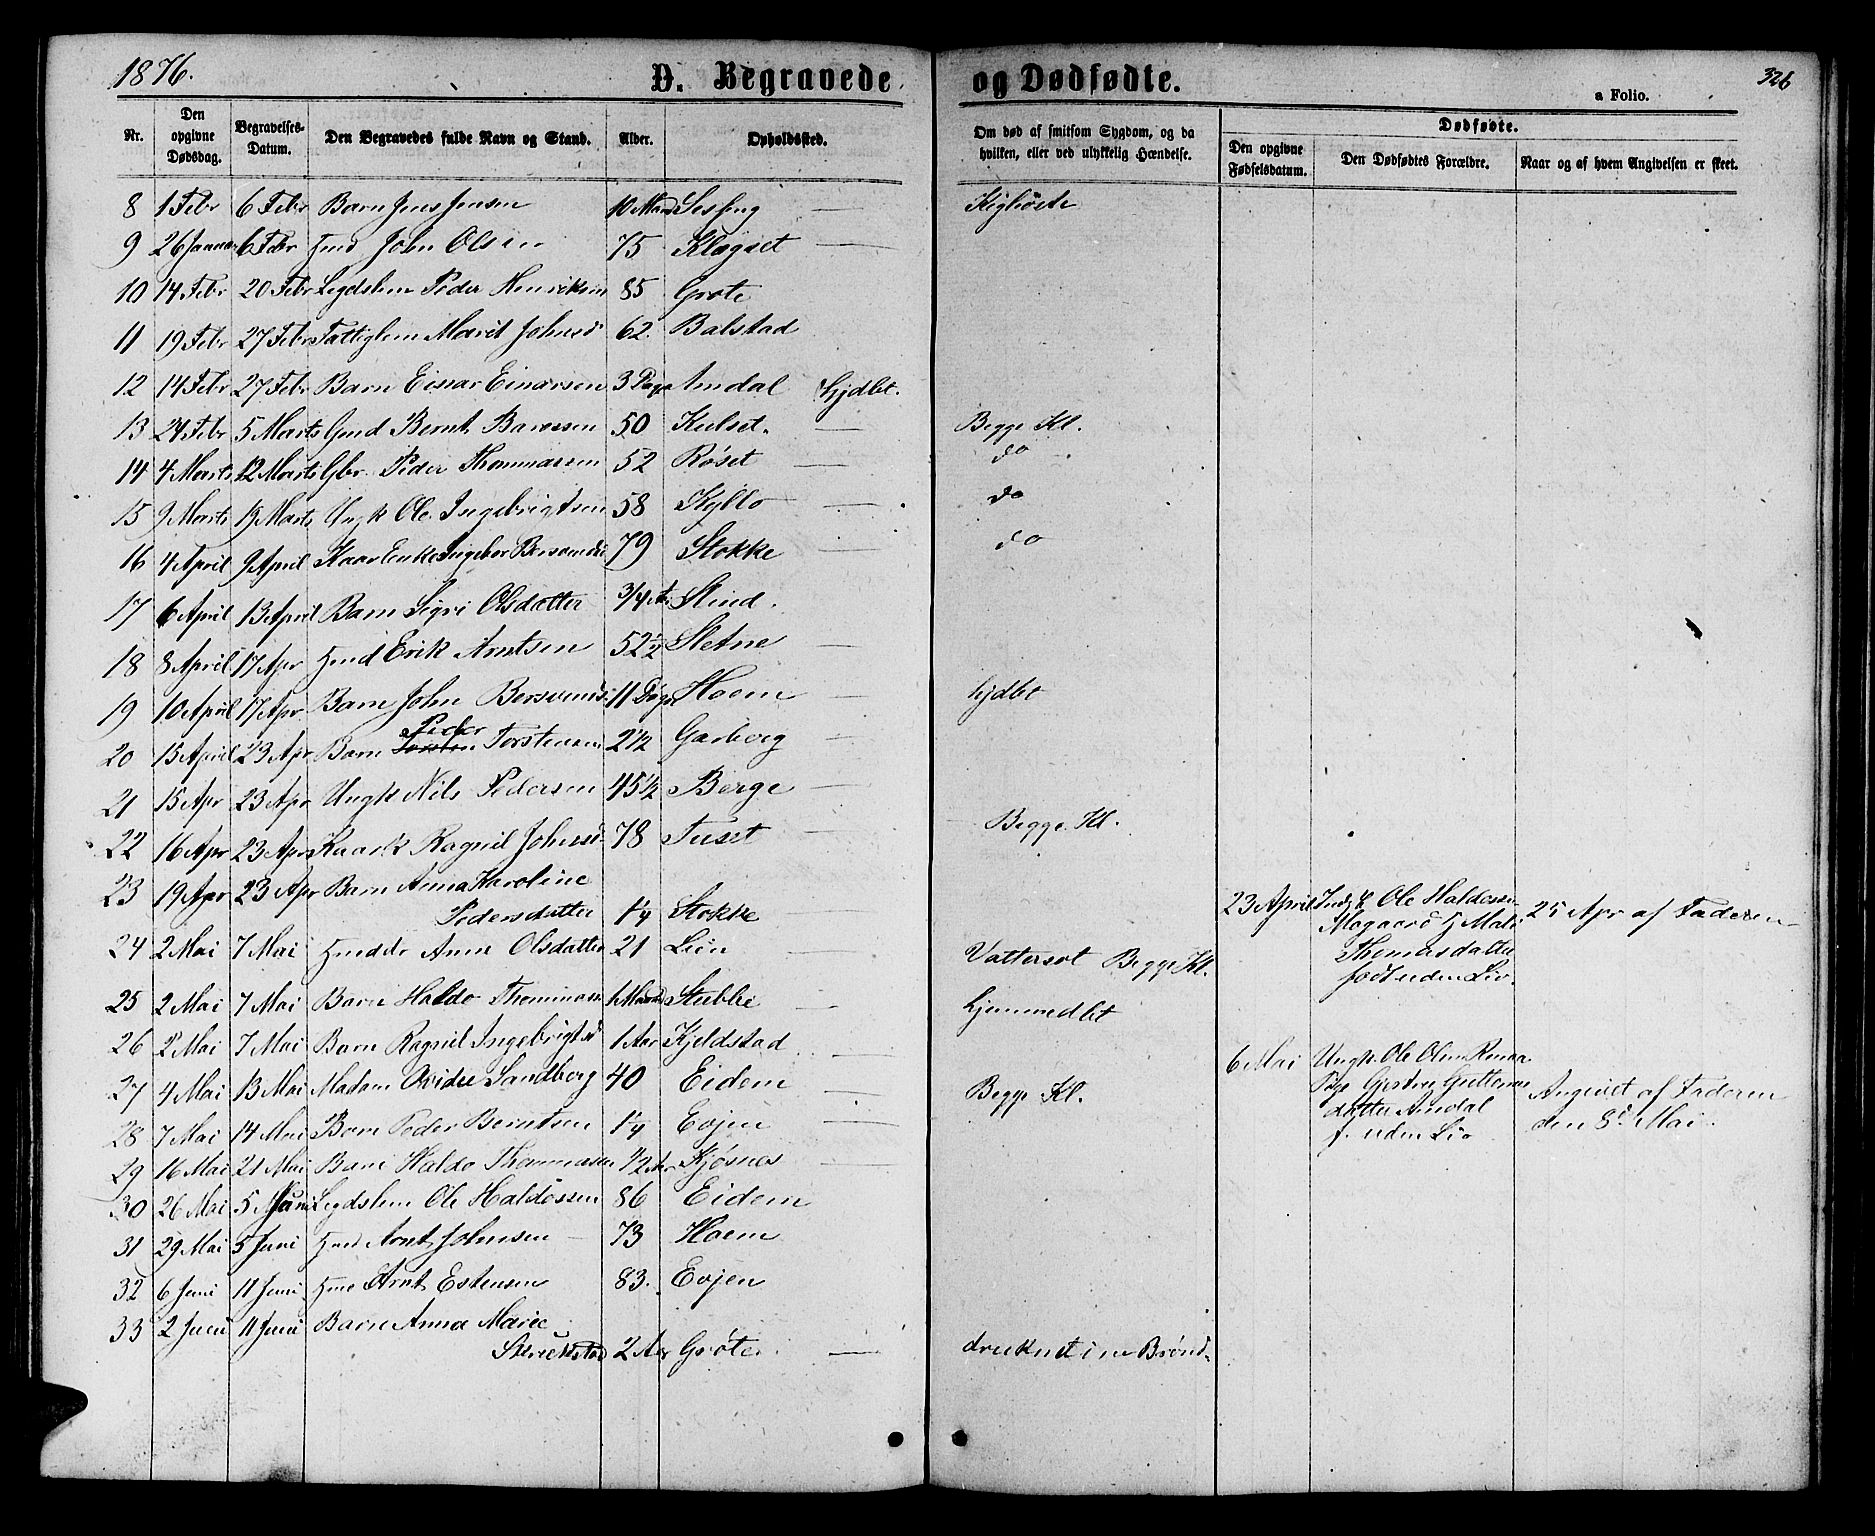 1876.
D. Begravede og Dødfødte.
326
a Folio.
Nr. Den opgivne Dødsdag. Begravelses-Datum. Den Begravedes fulde Navn og Stand. Alder. Opholdssted. Om død af smitsom Sygdom, og da hvilken, eller ved ulykkelig Hændelse. Dødfødte. Den opgivne Fødselsdatum. Den Dødfødtes Forældre. Naar og af hvem Angivelsen er skeet.
8 1 Febr 6 Febr Barn Jens Jensen 10 Maad Sesseng — Kighoste
9 26 Januar 6 Febr Gmd John Olsen 75 Klegset —
10 14 Febr 20 Febr Legdslem Peder Henriksen 85 Grøte
11 19 Febr 27 Febr Fattiglem Marit Johnsd 62. Balstad
12 14 Febr 27 Febr Barn Einar Einarsen 3 Dage Amdal hjdbt.
13 24 Febr 5 Marts Gmd Bernt Barossen 50 Kulset. — Begge Kl.
14 4 Marts 12 Marts Gbr. Peder Thommassen 52 Røset — do
15 9 Marts 19 Marts Ungk Ole Ingebrigtsen 58 Kyllo — do
16 4 April 9 April Kaar Enke Ingebor Bersvendsd 79 Stokke — do
17 6 April 13 April Barn Sigri Olsdatter 3/4 Ar Slind.
18 8 April 17 Apr Gmd Erik Arntsen 52 1/2 Sletne —
19 10 April 17 Apr Barn John Bersvends. 11 Dage Hoem — hjdbt
20 15 April 23 Apr Barn Peder Torstensen 2 1/2 Garberg —
21 15 Apr 23 Apr Ungk Nils Pedersen 45 1/2 Berge —
22 16 Apr 23 Apr Kaark Ragnil Johnsd 78 Tuset — Begge Kl.
23 19 Apr 23 Apr Barn Anna Karoline
Pedersdatter 1/4 Stokke — 23 April Indk Ole Haldossen 25 Apr af Faderen
Mogaard G Malt
Thomasdatter
født uden Liv.
24 2 Mai 7 Mai Gmddr Anne Olsdatter 21 Lien — Vattersot Begge Kl.
25 2 Mai 7 Mai Barn Haldo Thommass 1 Maad Stubbe — hjemmedbt
26 2 Mai 7 Mai Barn Ragnil Ingebrigtsd 1 Aar Kjeldstad —
6 Mai Ungk. Ole Olsen
27 4 Mai 13 Mai Madam Ovidee Sandberg 40 Eidem — Begge Kl. Pige Gjertru Guttorms
datter Amdal
f. uden Liv Angivet af Faderen
den 8de Mai.
28 7 Mai 14 Mai Barn Peder Berntsen 1/4 Evjen —
29 16 Mai 21 Mai Barn Haldo Thommasen 1/2 Aar Kjøsnes —
30 26 Mai 5 Juni Legdslem Ole Haldossen 86 Eidem
31 29 Mai 5 Juni Gmd Arnt Johnsen 73 Hoem
32 6 Juni 11 Juni Gmd Arnt Estensen 83. Evjen
33 2 Juni 11 Juni Barn Anna Marie
2 Aar Grøte — druknet i en Brønd.